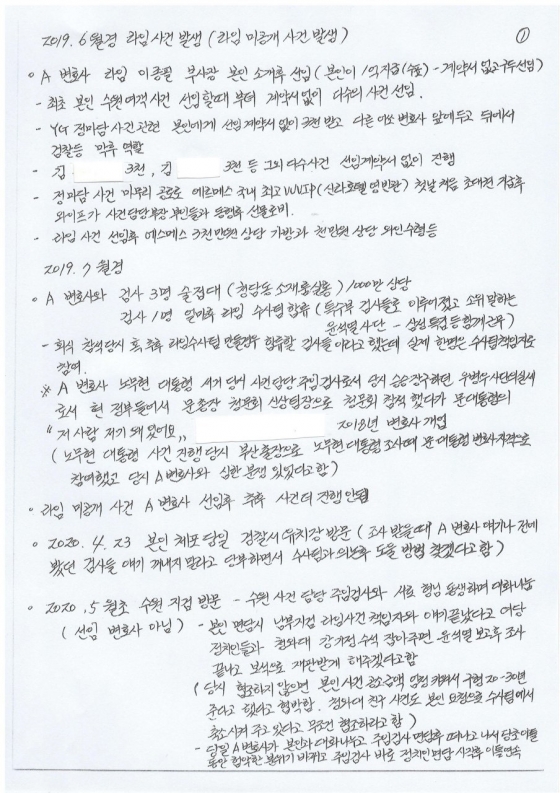 2019. 6월경 라임사건 발생 (라임 미공개 사건 발생) ①
○ A 변호사 라임 이종필 부사장 본인 소개후 선임 (본인이 1억 지급(수표) - 계약서 없고 구두선임)
- 최초 본인 수원여객사건 선임할때 부터 계약서없이 다수의 사건 선임.
- YG 정마담사건 관련 본인에게 선임계약서없이 3천 받고 다른 이모 변호사 앞에두고 뒤에서
검찰등 막후 역할
- 김 3천, 김 3천 등 그외 다수사건 선임계약서 없이 진행
- 정마담 사건 마무리 공로로 에르메스 국내 최고 VVIP (신라호텔 영빈관) 첫날 처음 초대권 지급후
와이프가 사건담당 부장 부인들과 동행후 선물로비.
- 라임 사건 선임후 에르메스 3천만원 상당 가방과 천만원 상당 와인수령등
2019. 7월경
○ A 변호사와 검사 3명 술접대 (청담동 소재 룸살롱) /1000만 상당
검사 1명 얼마후 라임 수사팀 합류 (특수부 검사들로 이루어졌고 소위 말하는
윤석열 사단 - 삼성 특검등 함께 근무)
- 회식 참석당시 혹 추후 라임수사팀 만들경우 합류할 검사들이라고 했는데 실제 한명은 수사팀책임자로
참여.
※ A 변호사 노무현 대통령 서거 당시 사건담당 주임검사로서 당시 승승장구하던 우병우 사단의 실세
로서 현 정부들어서 문총장 청문회 신상팀장으로 청문회 참석 했다가 문대통령의
"저 사람 저기 왜 있어요" 2018년 변호사 개업
(노무현 대통령 사건 진행당시 부산출장으로 노무현 대통령 조사때 문대통령 변호사자격으로
참여했고 당시 A변호사와 심한 분쟁 있었다고함)
○ 라임 미공개 사건 A 변호사 선임후 추후 사건 더 진행 안됨
○ 2020. 4. 23 본인 체포 당일 경찰서 유치장 방문 (조사 받을때 A 변호사 얘기나 전에
봤던 검사들 얘기 꺼내지 말라고 당부하면서 수사팀과 의논후 도울 방법 찾겠다고 함)
○ 2020. 5월초 수원 지검 방문 - 수원 사건 담당 주임검사와 서로 형님 동생하며 대화나눔
(선임 변호사 아님) - 본인 면담시 남부지검 라임사건 책임자와 얘기끝났다고 여당
정치인들과 청와대 강기정 수석 잡아주면 윤석열 보고후 조사
끝나고 보석으로 재판받게 해주겠다고함
(당시 협조하지 않으면 본인 사건 공소금액 엄청 키워서 구형 20-30년
준다고 했다고 협박함. 청와대 친구 사건도 본인 요청으로 수사팀에서
축소시켜 주고 있다고 무조건 협조하라고 함)
- 당일 A변호사가 본인과 대화나누고 주임검사 면담후 떠나고 나서 당초 이틀
동안 험악한 분위기 바뀌고 주임검사 바로 정치인면담 시작후 이틀연속